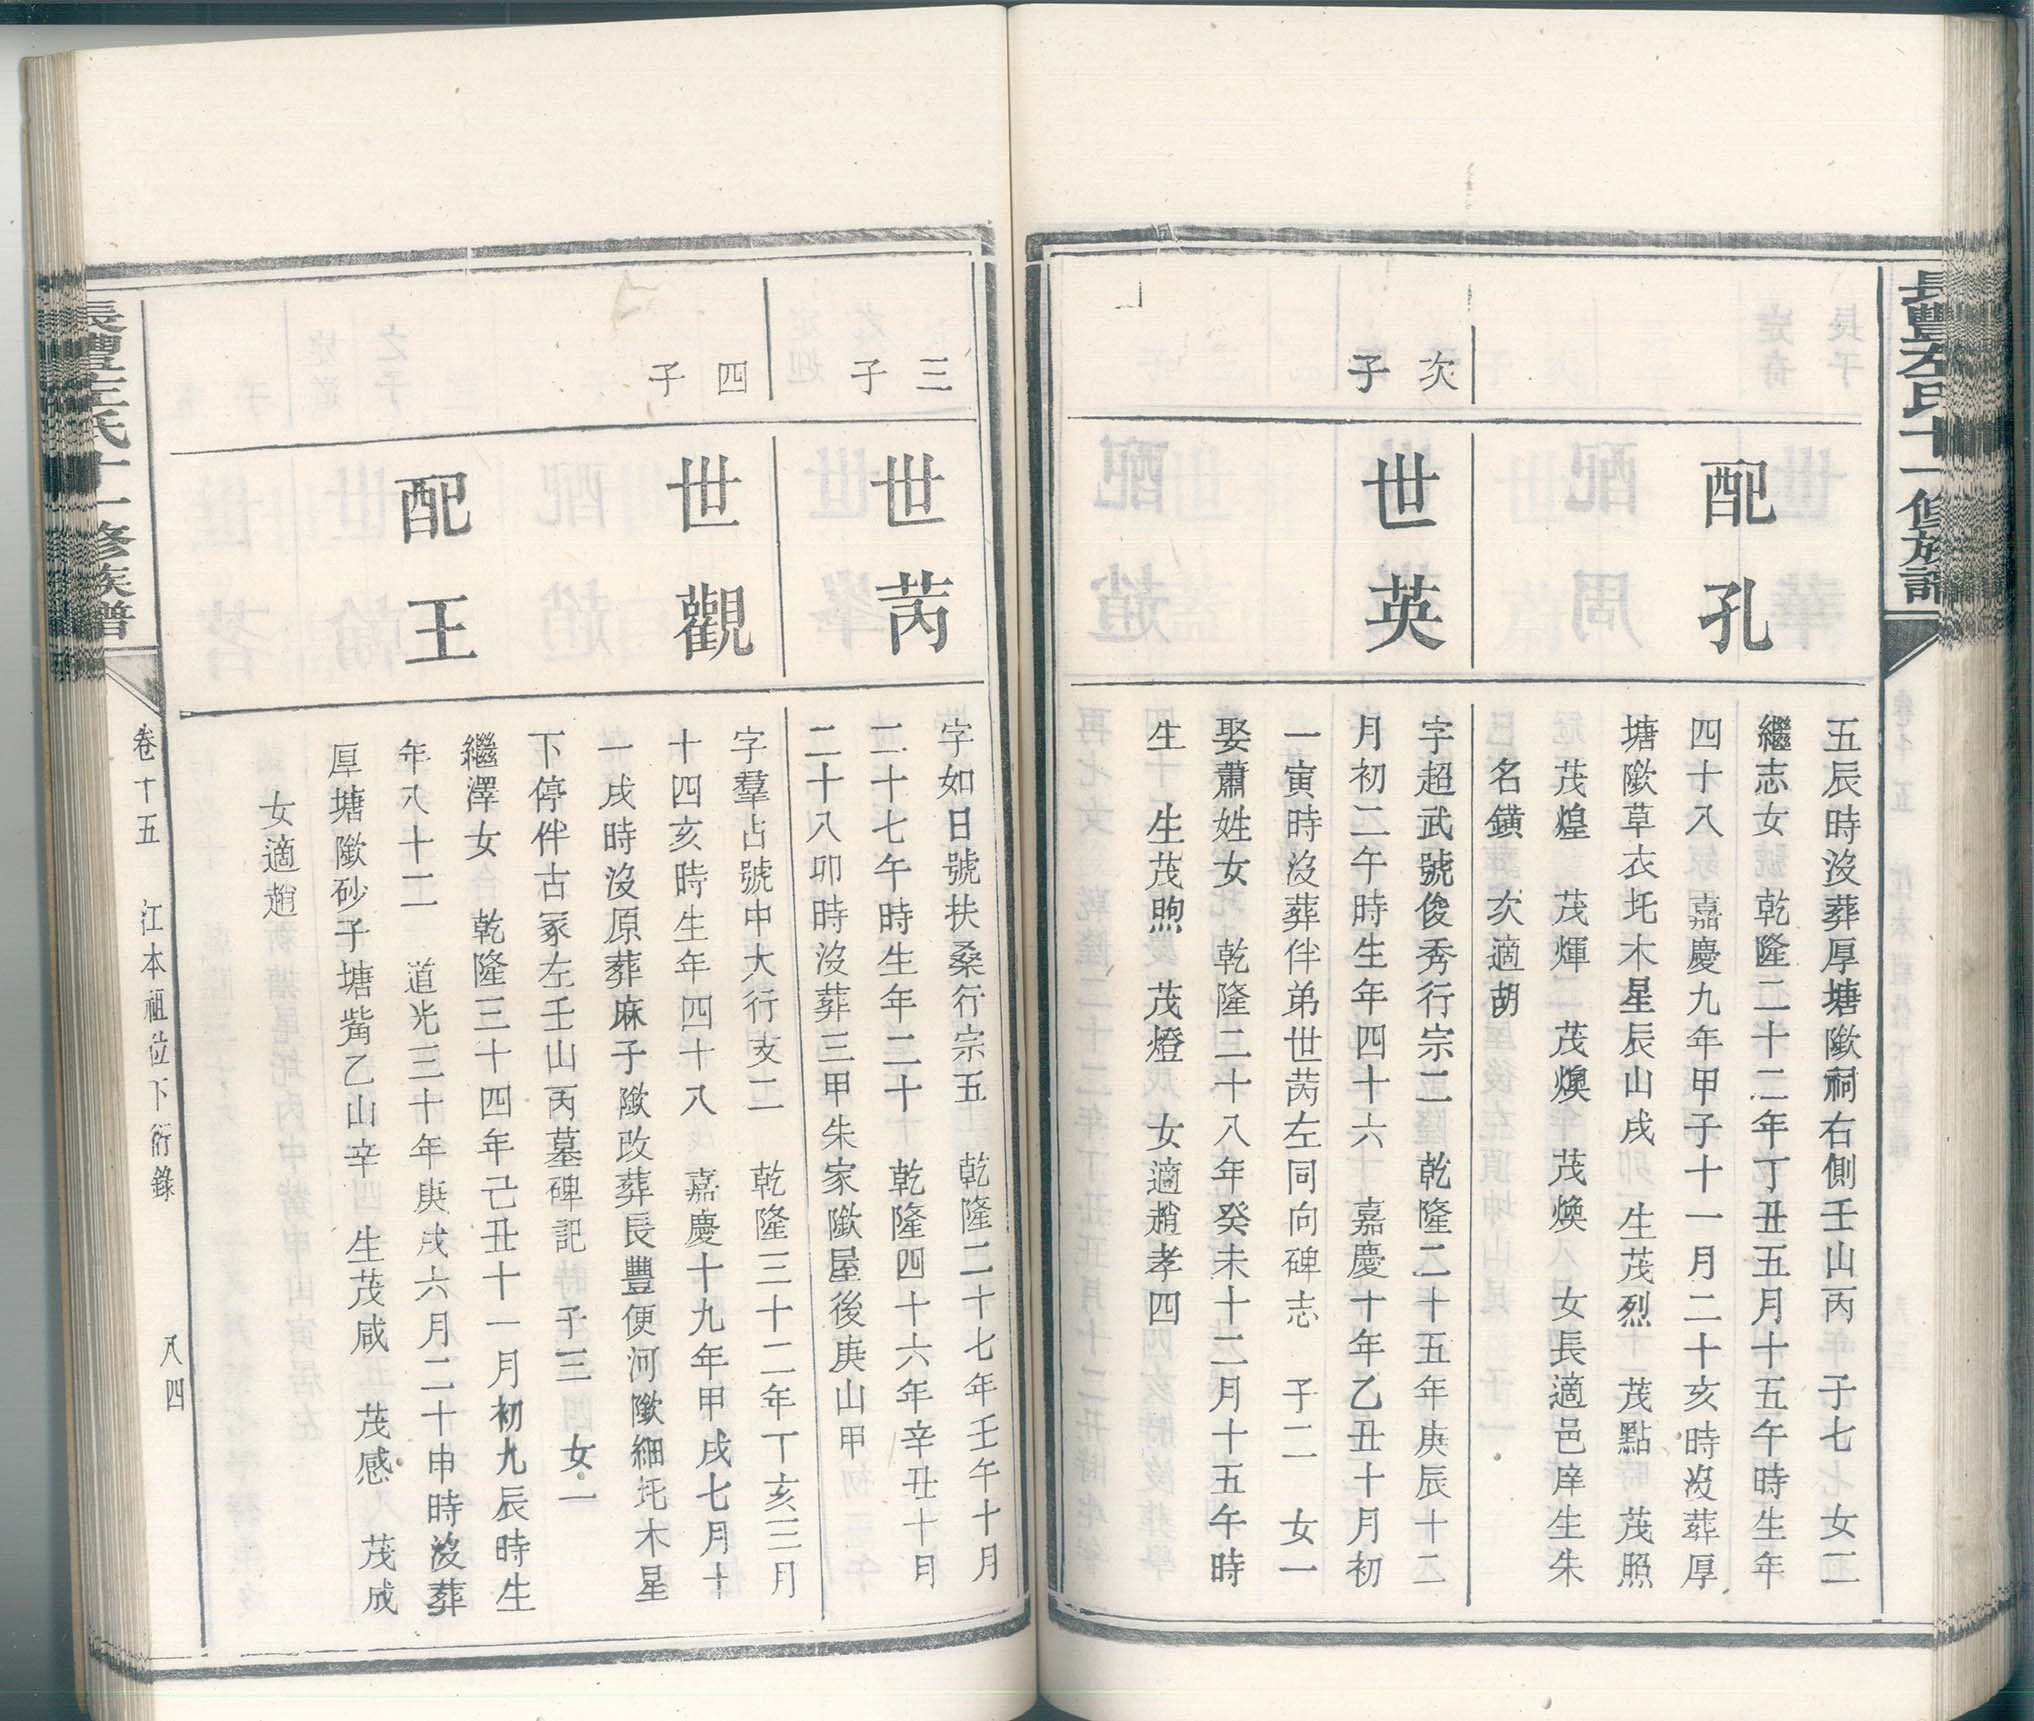 長豐左氏十一修族譜
配孔
五辰時沒葬厚塘歐祠右側壬山丙　子七　女二
繼志女　乾隆二十二年丁丑五月十五午時生年
四十八　嘉慶九年甲子十一月二十亥時沒葬厚
塘歐草衣圫木星辰山戌　生茂烈　茂點　茂照
茂煌　茂煇　茂燠　茂煥　女長適邑庠生朱
名鐄　次適胡
次子
世英
字超武號俊秀行宗二　乾隆二十五年庚辰十二
月初二午時生年四十六　嘉慶十年乙丑十月初
一寅時沒葬伴弟世芮左同向碑志　子二　女一
娶蕭姓女　乾隆二十八年癸未十二月十五午時
生　生茂煦　茂燈　女適趙孝四
三子
世芮
字如日號扶桑行宗五　乾隆二十七年壬午十月
二十七午時生年二十　乾隆四十六年辛丑十月
二十八卯時沒葬三甲朱家歐屋後庚山甲
四子
世觀
字羣占號中大行支二　乾隆三十二年丁亥三月
十四亥時生年四十八　嘉慶十九年甲戌七月十
一戌時沒原葬麻子歐改葬長豐便河歐細圫木星
下停伴古冢左壬山丙墓碑記　子三　女一
配王
繼澤女　乾隆三十四年己丑十一月初九辰時生
年八十二　道光三十年庚戌六月二十申時沒葬
厚塘歐砂子塘觜乙山辛　生茂咸　茂感　茂成
女適趙
長豐左氏十一修族譜
卷十五　江本祖位下衍錄　八四